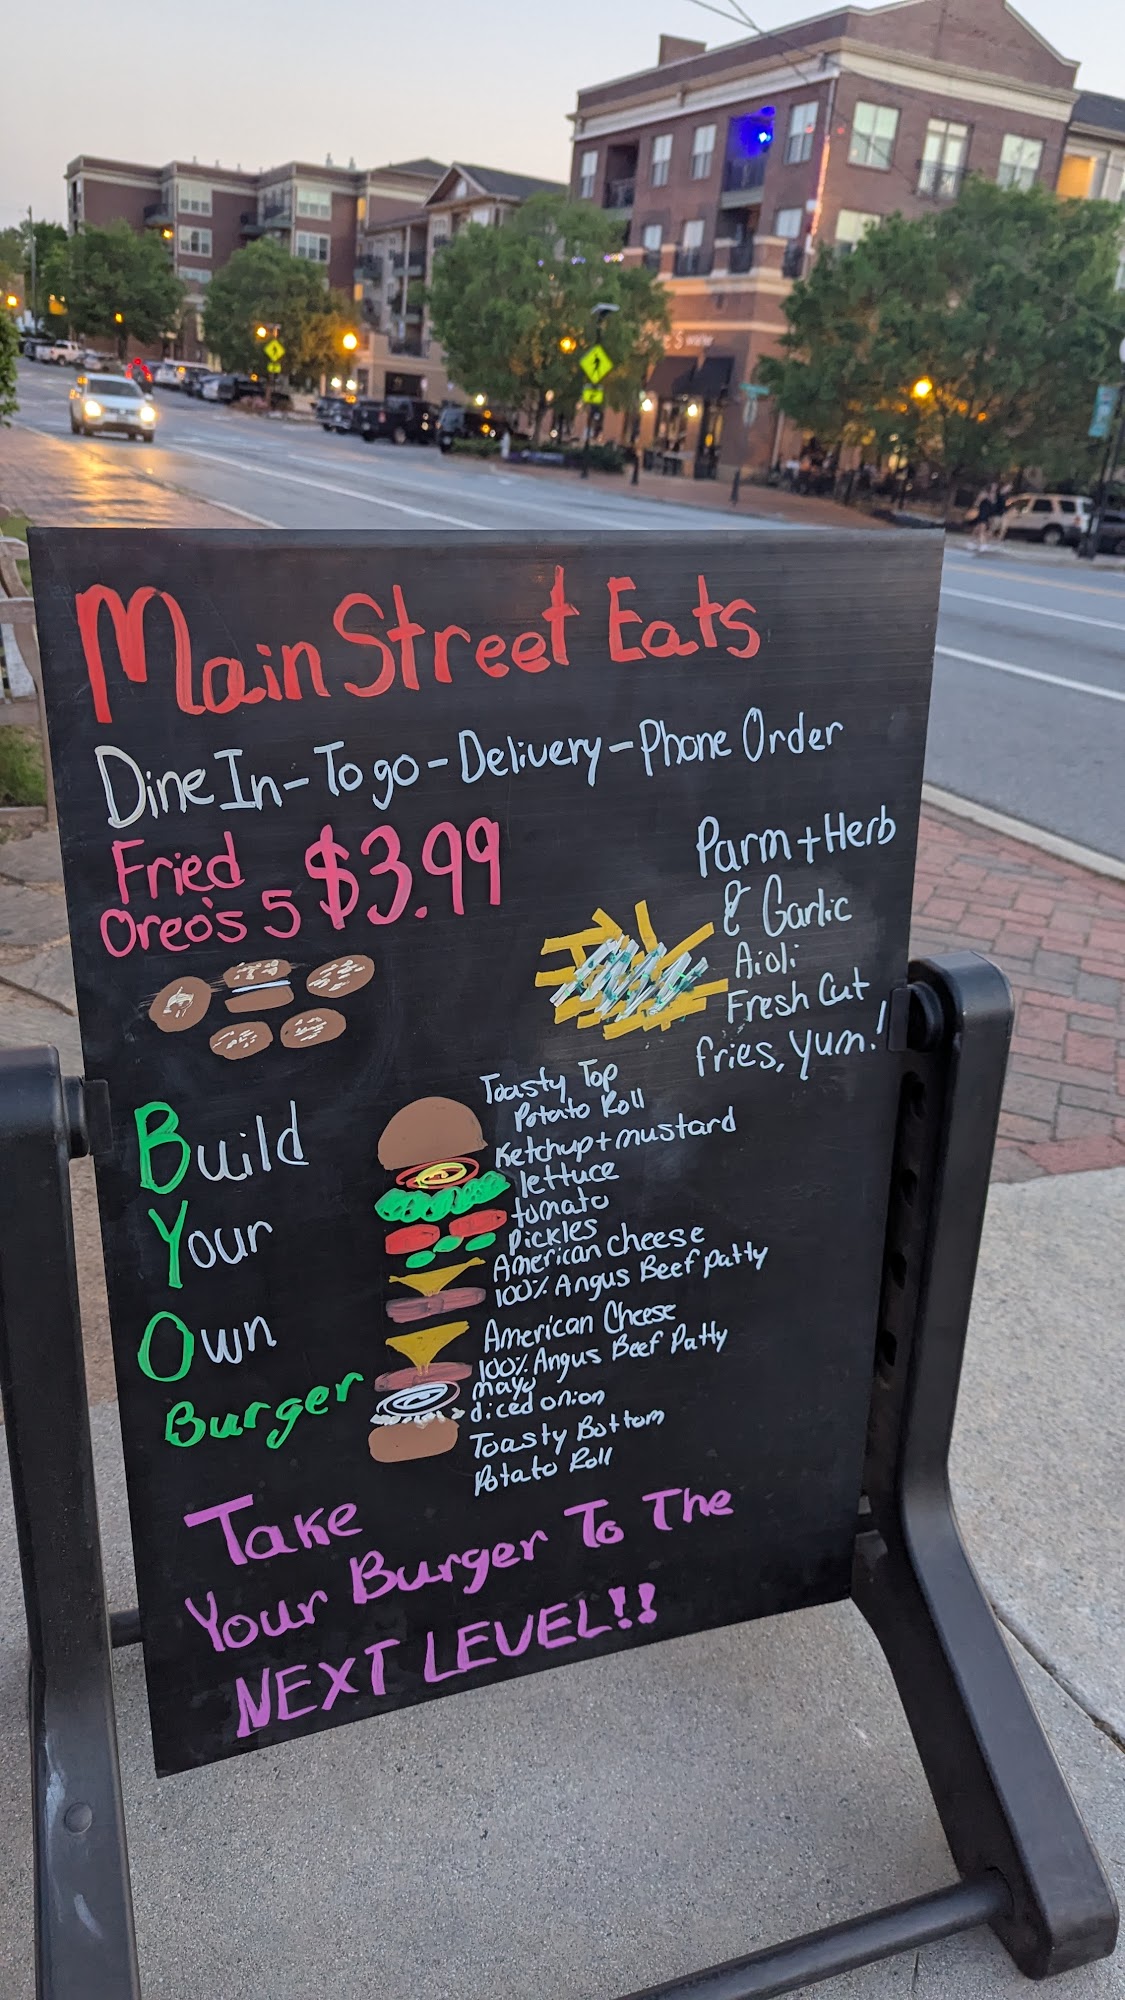 Main Street Eats
Dine In - To go - Delivery - Phone Order
Fried
Oreo's 5 $3.99
Parm + Herb
& Garlic
Aioli
Fresh Cut
fries, yum!
Build
Your
Own
Burger
Toasty Top
Potato Roll
Ketchup + mustard
lettuce
tomato
Pickles
American cheese
100% Angus Beef patty
American Cheese
100% Angus Beef Patty
mayo
diced onion
Toasty Bottom
Potato Roll
Take
Your Burger To The
NEXT LEVEL!!